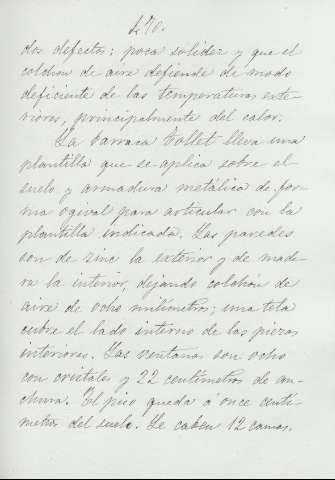 470.
dos defectos: poca solidez y que el
colchon de aire defiende de modo
deficiente de las temperaturas exte-
riores, principalmente del calor.
La barraca Tollet lleva una
plantilla que se aplica sobre el
suelo y armadura metálica de for-
ma ogival para articular con la
plantilla indicada. Las paredes
son de zinc la exterior y de made-
ra la interior, dejando colchón de
aire de ocho milímetros; una tela
cubre el lado interno de las piezas
interiores. Las ventanas son ocho
con cristales y 22 centímetros de an-
chura. El piso queda á once centí-
metros del suelo. Se caben 12 camas.